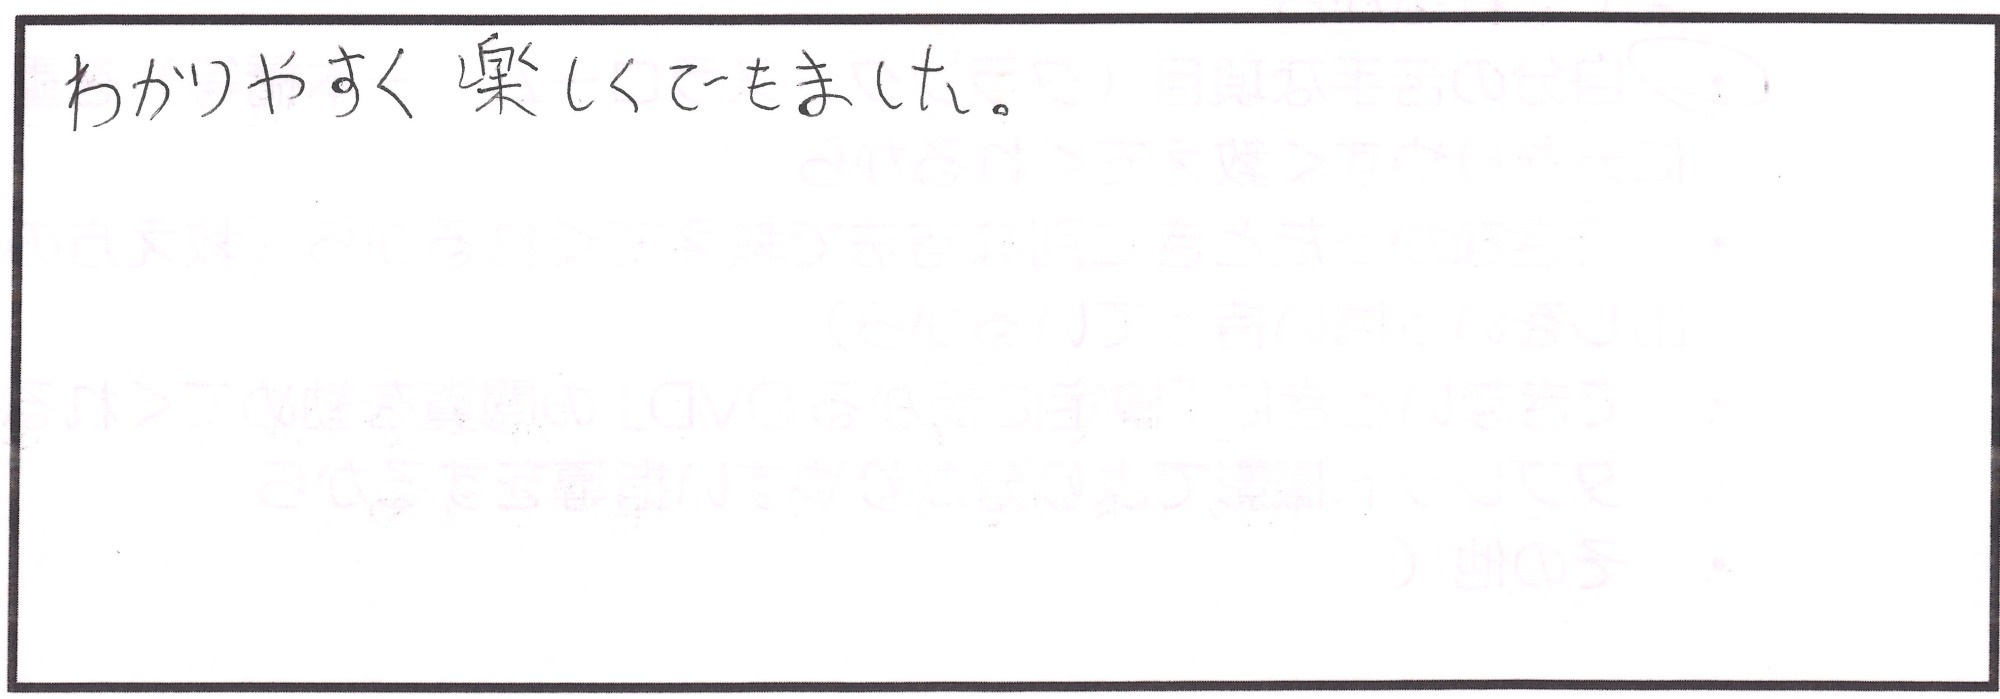 わかりやすく楽しくできました。